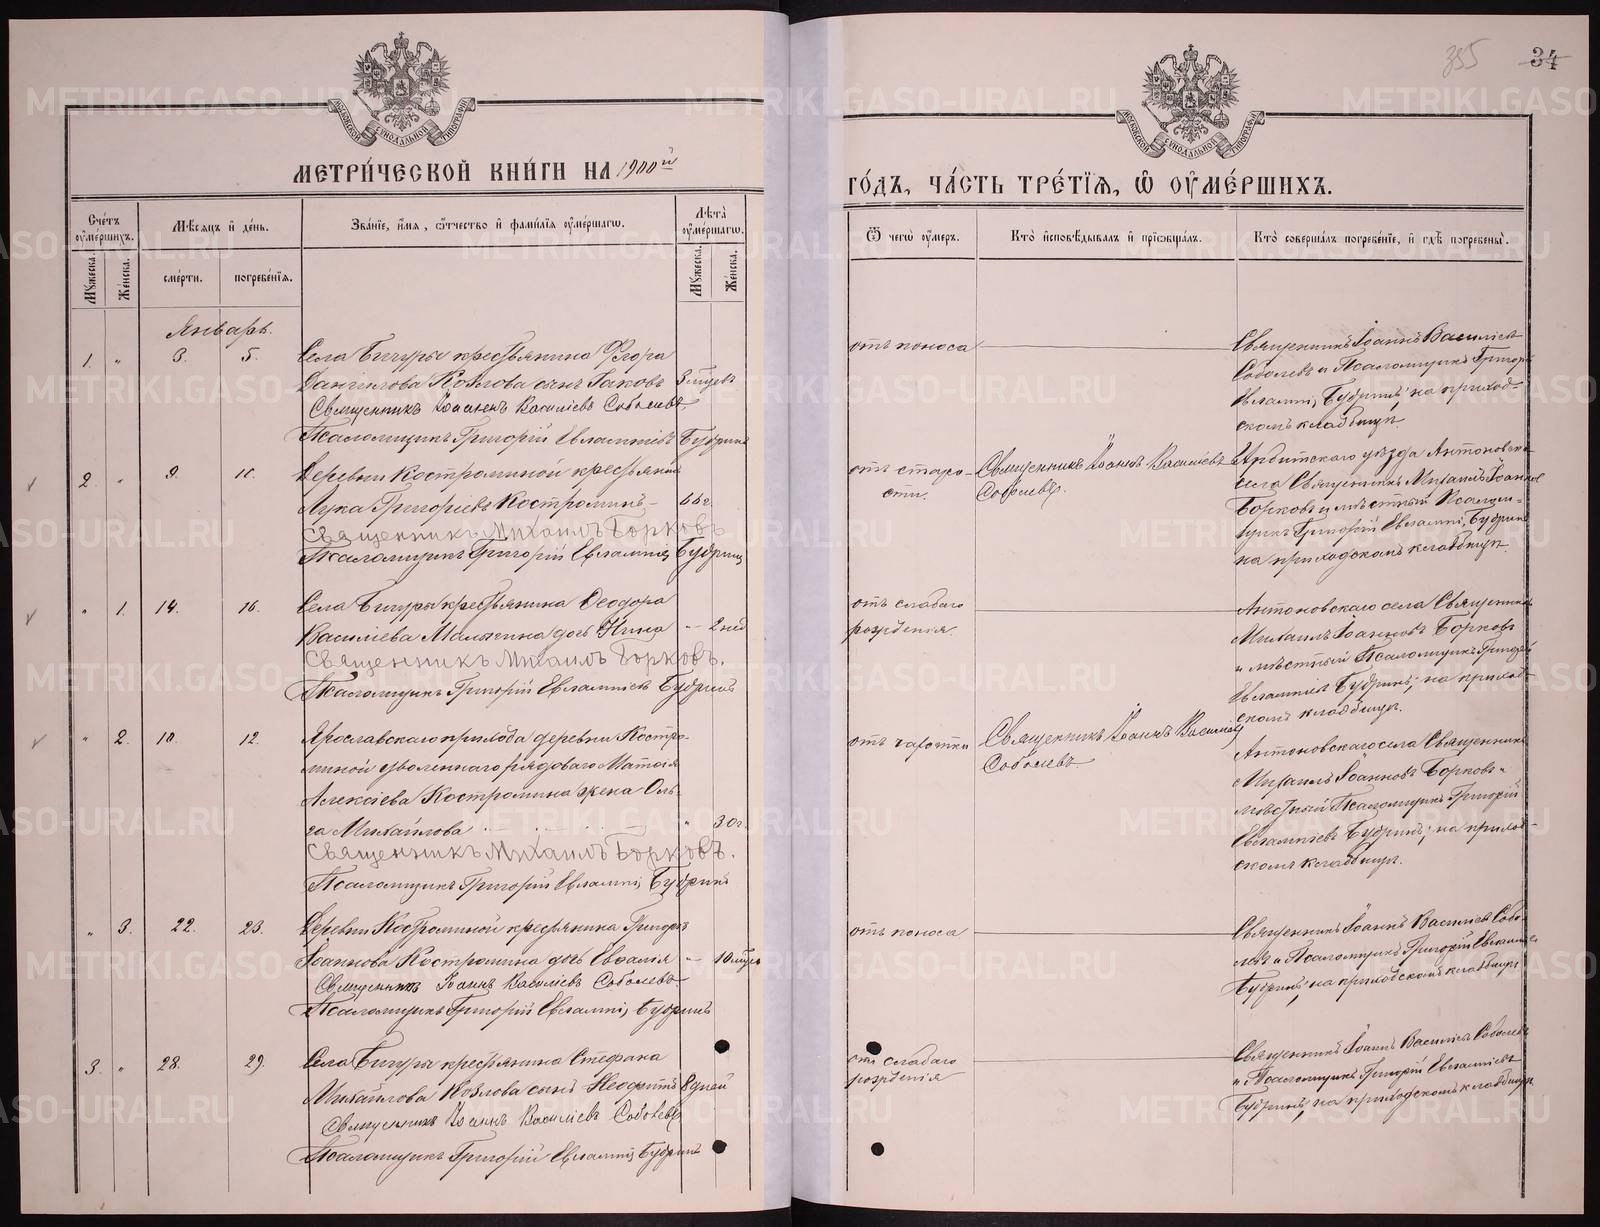 355
34
МОСКОВСКОЙ СѴНОДАЛЬНОЙ ТИПОГРАФІИ
МОСКОВСКОЙ СѴНОДАЛЬНОЙ ТИПОГРАФІИ
МЕТРИ́ЧЕСКОЙ КНИ́ГИ НА 1900й
ГО́ДЪ, ЧА́СТЬ ТРЕ́ТІѦ, Ѡ҆ ОУ҆МЕ́РШИХЪ.
Сче́тъ оу҆ме́ршихъ.
Мѣ́сяцъ и҆ де́нь.
Зва́нїе, и҆́мя, ѻ҆́тчество и҆ фамилїя оу҆ме́ршагѡ.
Лѣ́та оу҆ме́ршагѡ.
Ѿ чегѡ̀ оу҆́меръ.
Кто̀ и҆сповѣ́дывалъ и҆ прїѡбща́лъ.
Кто̀ соверша́лъ погребе́нїе, и҆ гдѣ̀ погребены̀.
Му́жеска.
Же́нска.
сме́рти.
погребе́нїя.
Му́жеска.
Же́нска.
Январь.
1. „ 3. 5. Села Бичуры крестьянина Егора
Данiилова Козлова сынъ Iаковъ 3 мѣсяц.
Священникъ Iоаннъ Василiевъ Соболевъ.
Псаломщикъ Григорiй Евлампiевъ Бубринъ
отъ поноса
Священникъ Iоаннъ Василiевъ
Соболевъ и Псаломщикъ Григорiй
Евлампi, Бубринъ; на приход-
скомъ кладбищѣ.
2. „ 9. 11. Деревни Костроминой крестьянинъ
Лука Григорiевъ Костроминъ – 66 г.
Священникъ Михаилъ Борковъ
Псаломщикъ Григорiй Евлампiев Бубринъ
отъ старо-
сти.
Священникъ Iоаннъ Василiевъ
Соболевъ.
Ирбитскаго уѣзда Антоновска
села Священникъ Михаилъ Iоанновъ
Борковъ и мѣстный Псалом-
щикъ Григорiй Евлампi, Бубринъ
на приходскомъ кладбищѣ.
„ 1. 14. 16. Села Бичуры крестьянина Ѳеодора
Василiева Малыгина дочь Нина „ 2 нед
Священникъ Михаилъ Борковъ.
Псаломщикъ Григорiй Евлампiевъ Бубринъ
отъ слабаго
рожденiя.
Антоновскаго села Священникъ
Михаилъ Iоанновъ Борковъ
и мѣстный Псаломщикъ Григорiй
Евлампiевъ Бубринъ; на приход-
скомъ кладбищѣ.
„ 2. 10. 12. Ярославскаго прихода деревни Костро-
миной уволеннаго рядоваго Матѳiя
Алексiева Костромина жена Оль-
га Михайлова „ 30 г.
Священникъ Михаилъ Борковъ.
Псаломщикъ Григорiй Евлампi, Бубринъ
отъ чахотки
Священникъ Iоаннъ Василiевъ
Соболевъ
Антоновскаго села Священникъ
Михаилъ Iоанновъ Борковъ и
мѣстный Псаломщикъ Григорiй
Евлампiевъ Бубринъ; на приход-
скомъ кладбищѣ.
„ 3. 22. 23. Деревни Костроминой крестьянина Григорiя
Iоаннова Костромина дочь Евѳалiя „ 10 мѣся
Священникъ Iоаннъ Василiевъ Соболевъ
Псаломщикъ Григорiй Евлампi, Бубринъ
отъ поноса
Священникъ Iоаннъ Василiевъ Собо-
левъ и Псаломщикъ Григорiй Евлампiев
Бубринъ; на приходскомъ кладбищѣ
3. „ 28. 29. Села Бичуры крестьянина Стефана
Михайлова Козлова сынъ Неофитъ 8 дней
Священникъ Iоаннъ Василiевъ Соболевъ
Псаломщикъ Григорiй Евлампi, Бубринъ
отъ слабаго
рожденiя
Священникъ Iоаннъ Василiевъ Соболевъ
и Псаломщикъ Григорiй Евлампiевъ
Бубринъ; на приходскомъ кладбищѣ